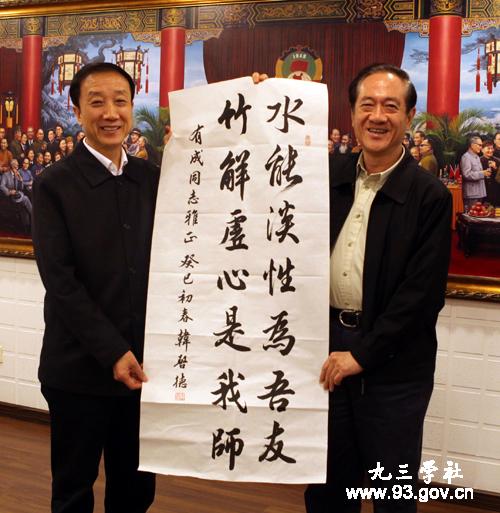 水能淡性為吾友
竹解虛心是我師
有成同志雅正 癸巳初春 韓啓德
九三学社
www.93.gov.cn